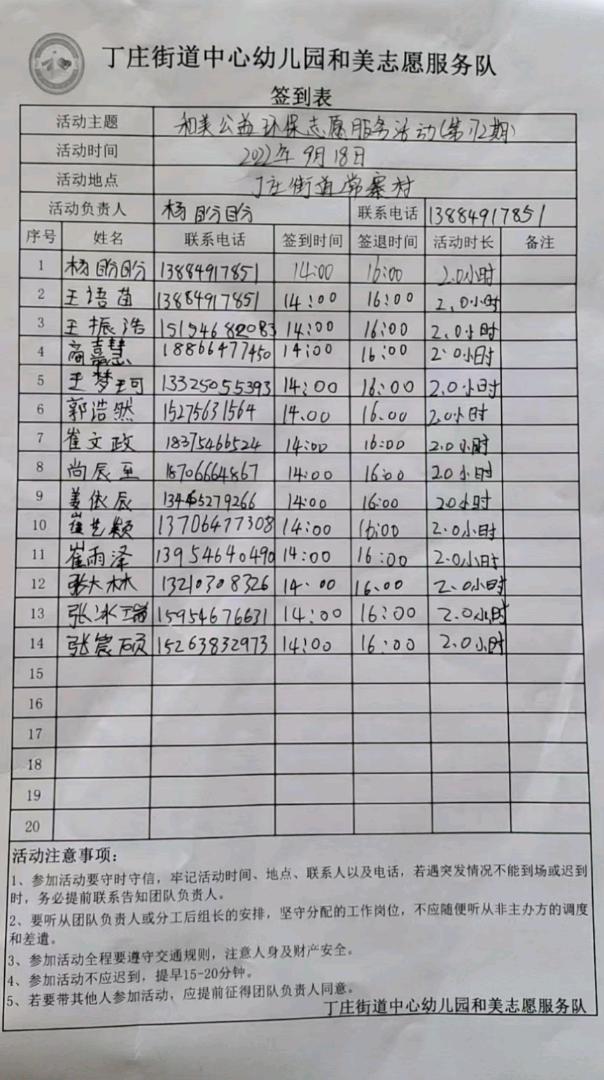 丁庄街道中心幼儿园和美志愿服务队
签到表
活动主题 和美公益环保志愿服务活动(第72期)
活动时间 2022年9月18日
活动地点 丁庄街道常寨村
活动负责人 杨盼盼 联系电话 13884917851
序号 姓名 联系电话 签到时间 签退时间 活动时长 备注
1 杨盼盼 13884917851 14:00 16:00 2.0小时
2 王语苗 13884917851 14:00 16:00 2.0小时
3 王振浩 14:00 16:00 2.0小时
4 商嘉慧 18866477450 14:00 16:00 2.0小时
5 王梦珂 13325055393 14:00 16:00 2.0小时
6 郭浩然 15275631564 14.00 16.00 2.0小时
7 崔文政 18375466524 14:00 16:00 2.0小时
8 尚辰 18706664867 14:00 16:00 20小时
9 姜依辰 14:00 16:00 20小时
10 崔艺颖 13706477308 14:00 16:00 2.0小时
11 崔雨泽 13954640490 14:00 16:00 2.0小时
12 张大林 13210308326 14.00 16.00 2.0小时
13 张冰瑞 15954676631 14:00 16:00 2.0小时
14 张宸硕 15263832973 14:00 16:00 2.0小时
15
16
17
18
19
20
活动注意事项：
1、参加活动要守时守信，牢记活动时间、地点、联系人以及电话，若遇突发情况不能到场或迟到
时，务必提前联系告知团队负责人。
2、要听从团队负责人或分工后组长的安排，坚守分配的工作岗位，不应随便听从非主办方的调度
和差遣。
3、参加活动全程要遵守交通规则，注意人身及财产安全。
4、参加活动不应迟到，提早15-20分钟。
5、若要带其他人参加活动，应提前征得团队负责人同意。
丁庄街道中心幼儿园和美志愿服务队